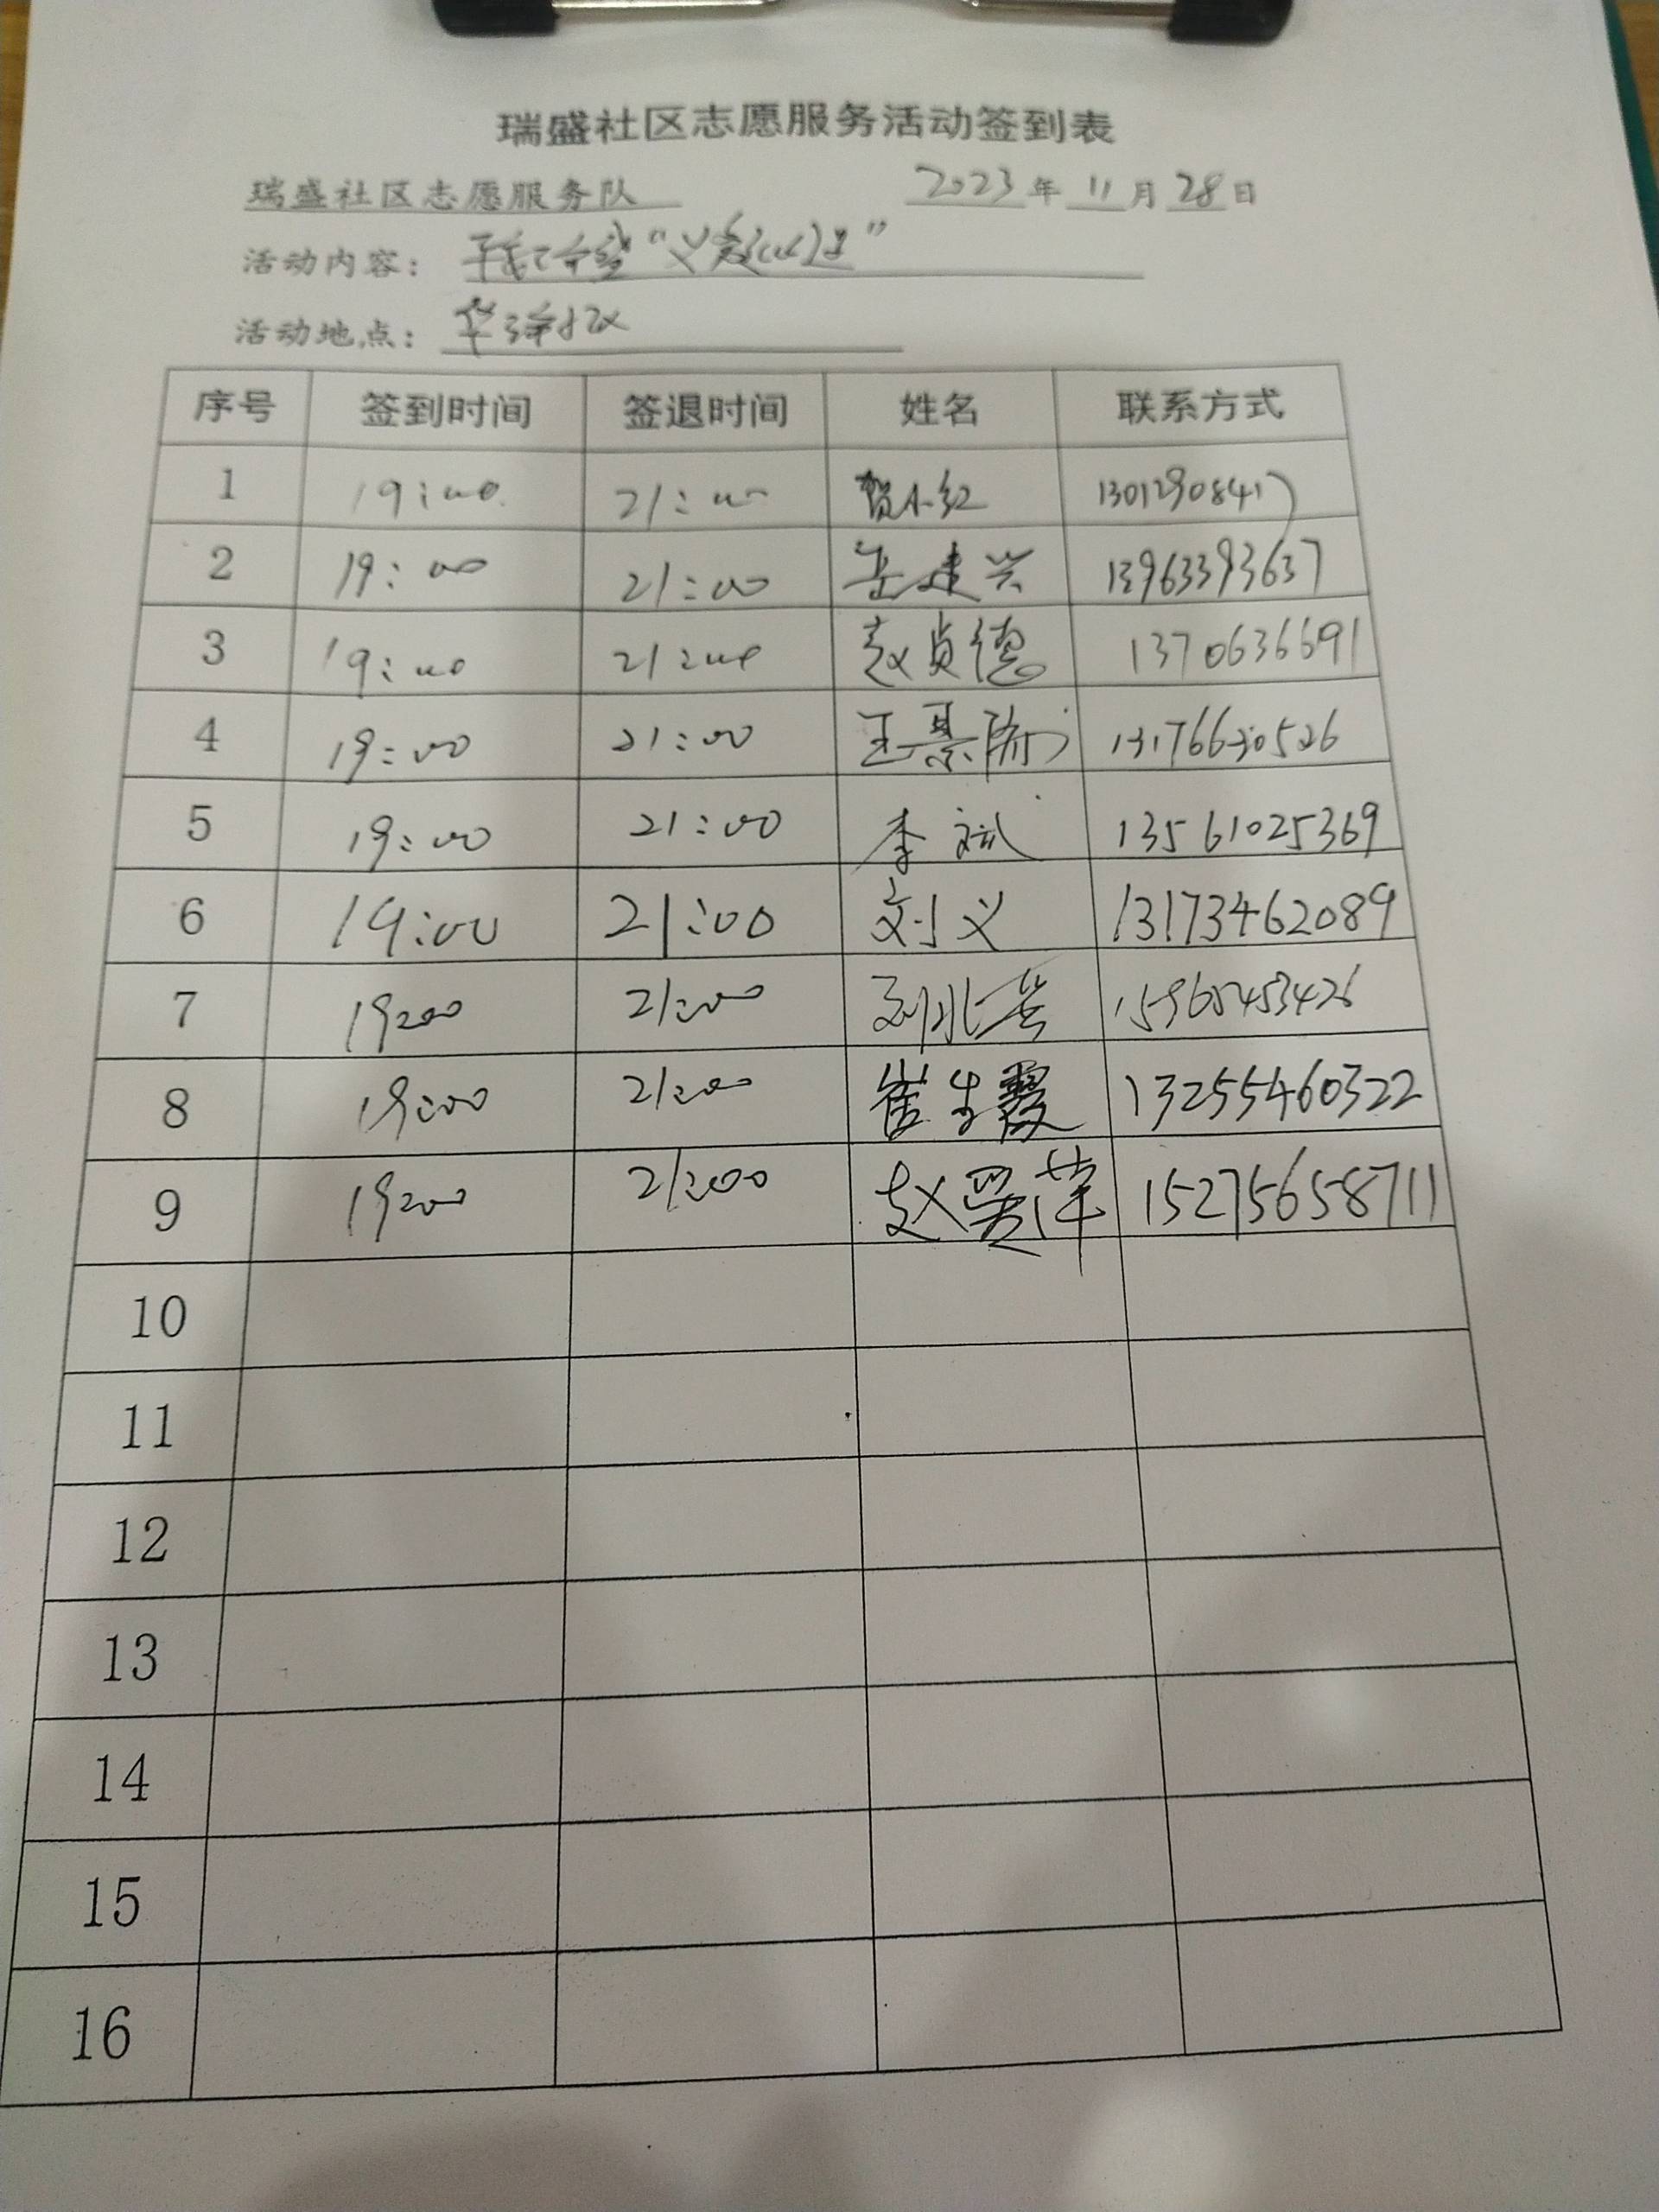 瑞盛社区志愿服务活动签到表
瑞盛社区志愿服务队 2023年 11月 28日
活动内容：
活动地点：
序号 签到时间 签退时间 姓名 联系方式
1 19:00 21:00 贺小红
2 19:00 21:00 岳建兴 13963393637
3 19:00 21:00 赵贞德 1370636691
4 19:00 21:00
5 19:00 21:00 李斌 13561025369
6 19:00 21:00 刘义 13173462089
7 19:00 21:00
8 19:00 21:00 13255460322
9 19:00 21:00 15275658711
10
11
12
13
14
15
16